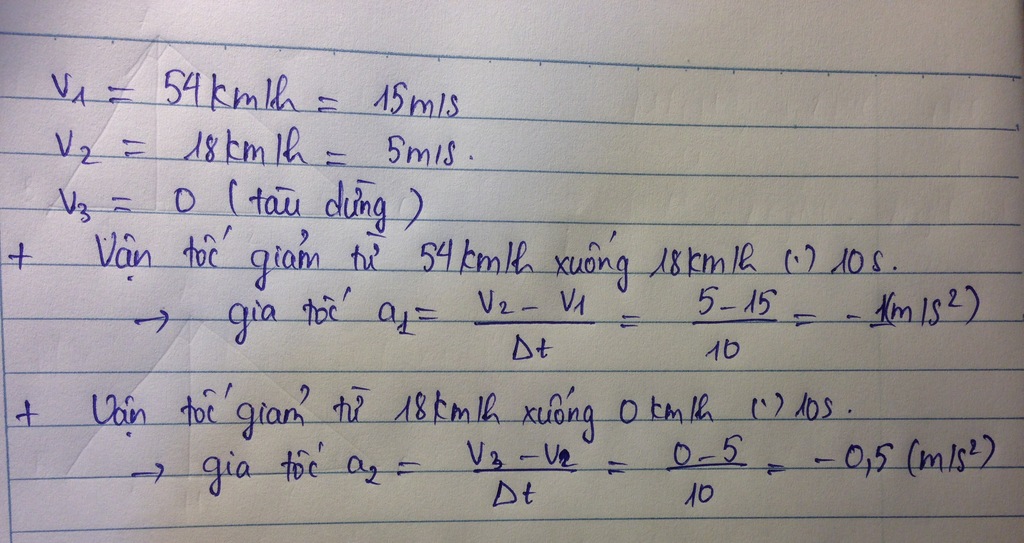 V1 = 54km/h = 15m/s
V2 = 18km/h = 5m/s.
V3 = 0 (tàu dừng)
+ Vận tốc giảm từ 54km/h xuống 18km/h (·) 10s.
→ gia tốc a1 = (V2 - V1)/Δt = (5-15)/10 = -1(m/s²)
+ Vận tốc giảm từ 18km/h xuống 0km/h (·) 10s.
→ gia tốc a2 = (V3 - V2)/Δt = (0-5)/10 = -0,5 (m/s²)